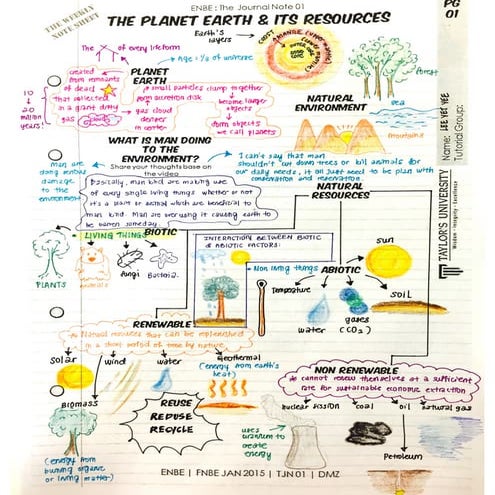 THE WEEKLY
NOTE SHEET
ENBE : The Journal Note 01
PG
01
THE PLANET EARTH & ITS RESOURCES
Earth's
layers
CRUST
MANTLE
The
of every lifeform
Age : 1/3 of universe
PLANET
EARTH
created
from remnants
of dead
that collected
in a giant ditty
gas clouds
10
20
million
years!
small particles clump together
form accretion disk
become larger
objects
gas cloud
denser
in center
form objects
we call planets
forest
NATURAL
ENVIRONMENT
sea
mountains
Name:
Tutorial Group:
WHAT IS MAN DOING
TO THE
ENVIRONMENT?
Share your thoughts base on
the video
Man are
doing serious
damage to
the environment
I can't say that man
shouldn't cut down trees or kill animals for
our daily needs, it all just need to be plan with
conservation and reservation.
Basically, man kind are making use
of every single living things whether or not
it's a plant or animal which are beneficial to
man kind. Man are over using it causing earth to
be barren someday.
NATURAL
RESOURCES
TAYLOR'S UNIVERSITY
Wisdom · Integrity · Excellence
LIVING THINGS
BIOTIC
PLANTS
fungi
INTERACTION BETWEEN BIOTIC
& ABIOTIC FACTORS:
Non living things
ABIOTIC
sun
Temperature
water
gases
(CO2)
soil
RENEWABLE
Natural resources that can be replenished
in a short period of time by nature.
solar
wind
water
Geothermal
(energy from earth's
heat)
Biomass
(energy from
burning organic
or living matter)
REUSE
REDUSE
RECYCLE
NON RENEWABLE
cannot renew themselves at a sufficient
rate for sustainable economic extraction
nuclear fission
coal
oil
natural gas
uses
uranium to
create
energy
Petroleum
ENBE | FNBE JAN 2015 | TJN 01 | DMZ